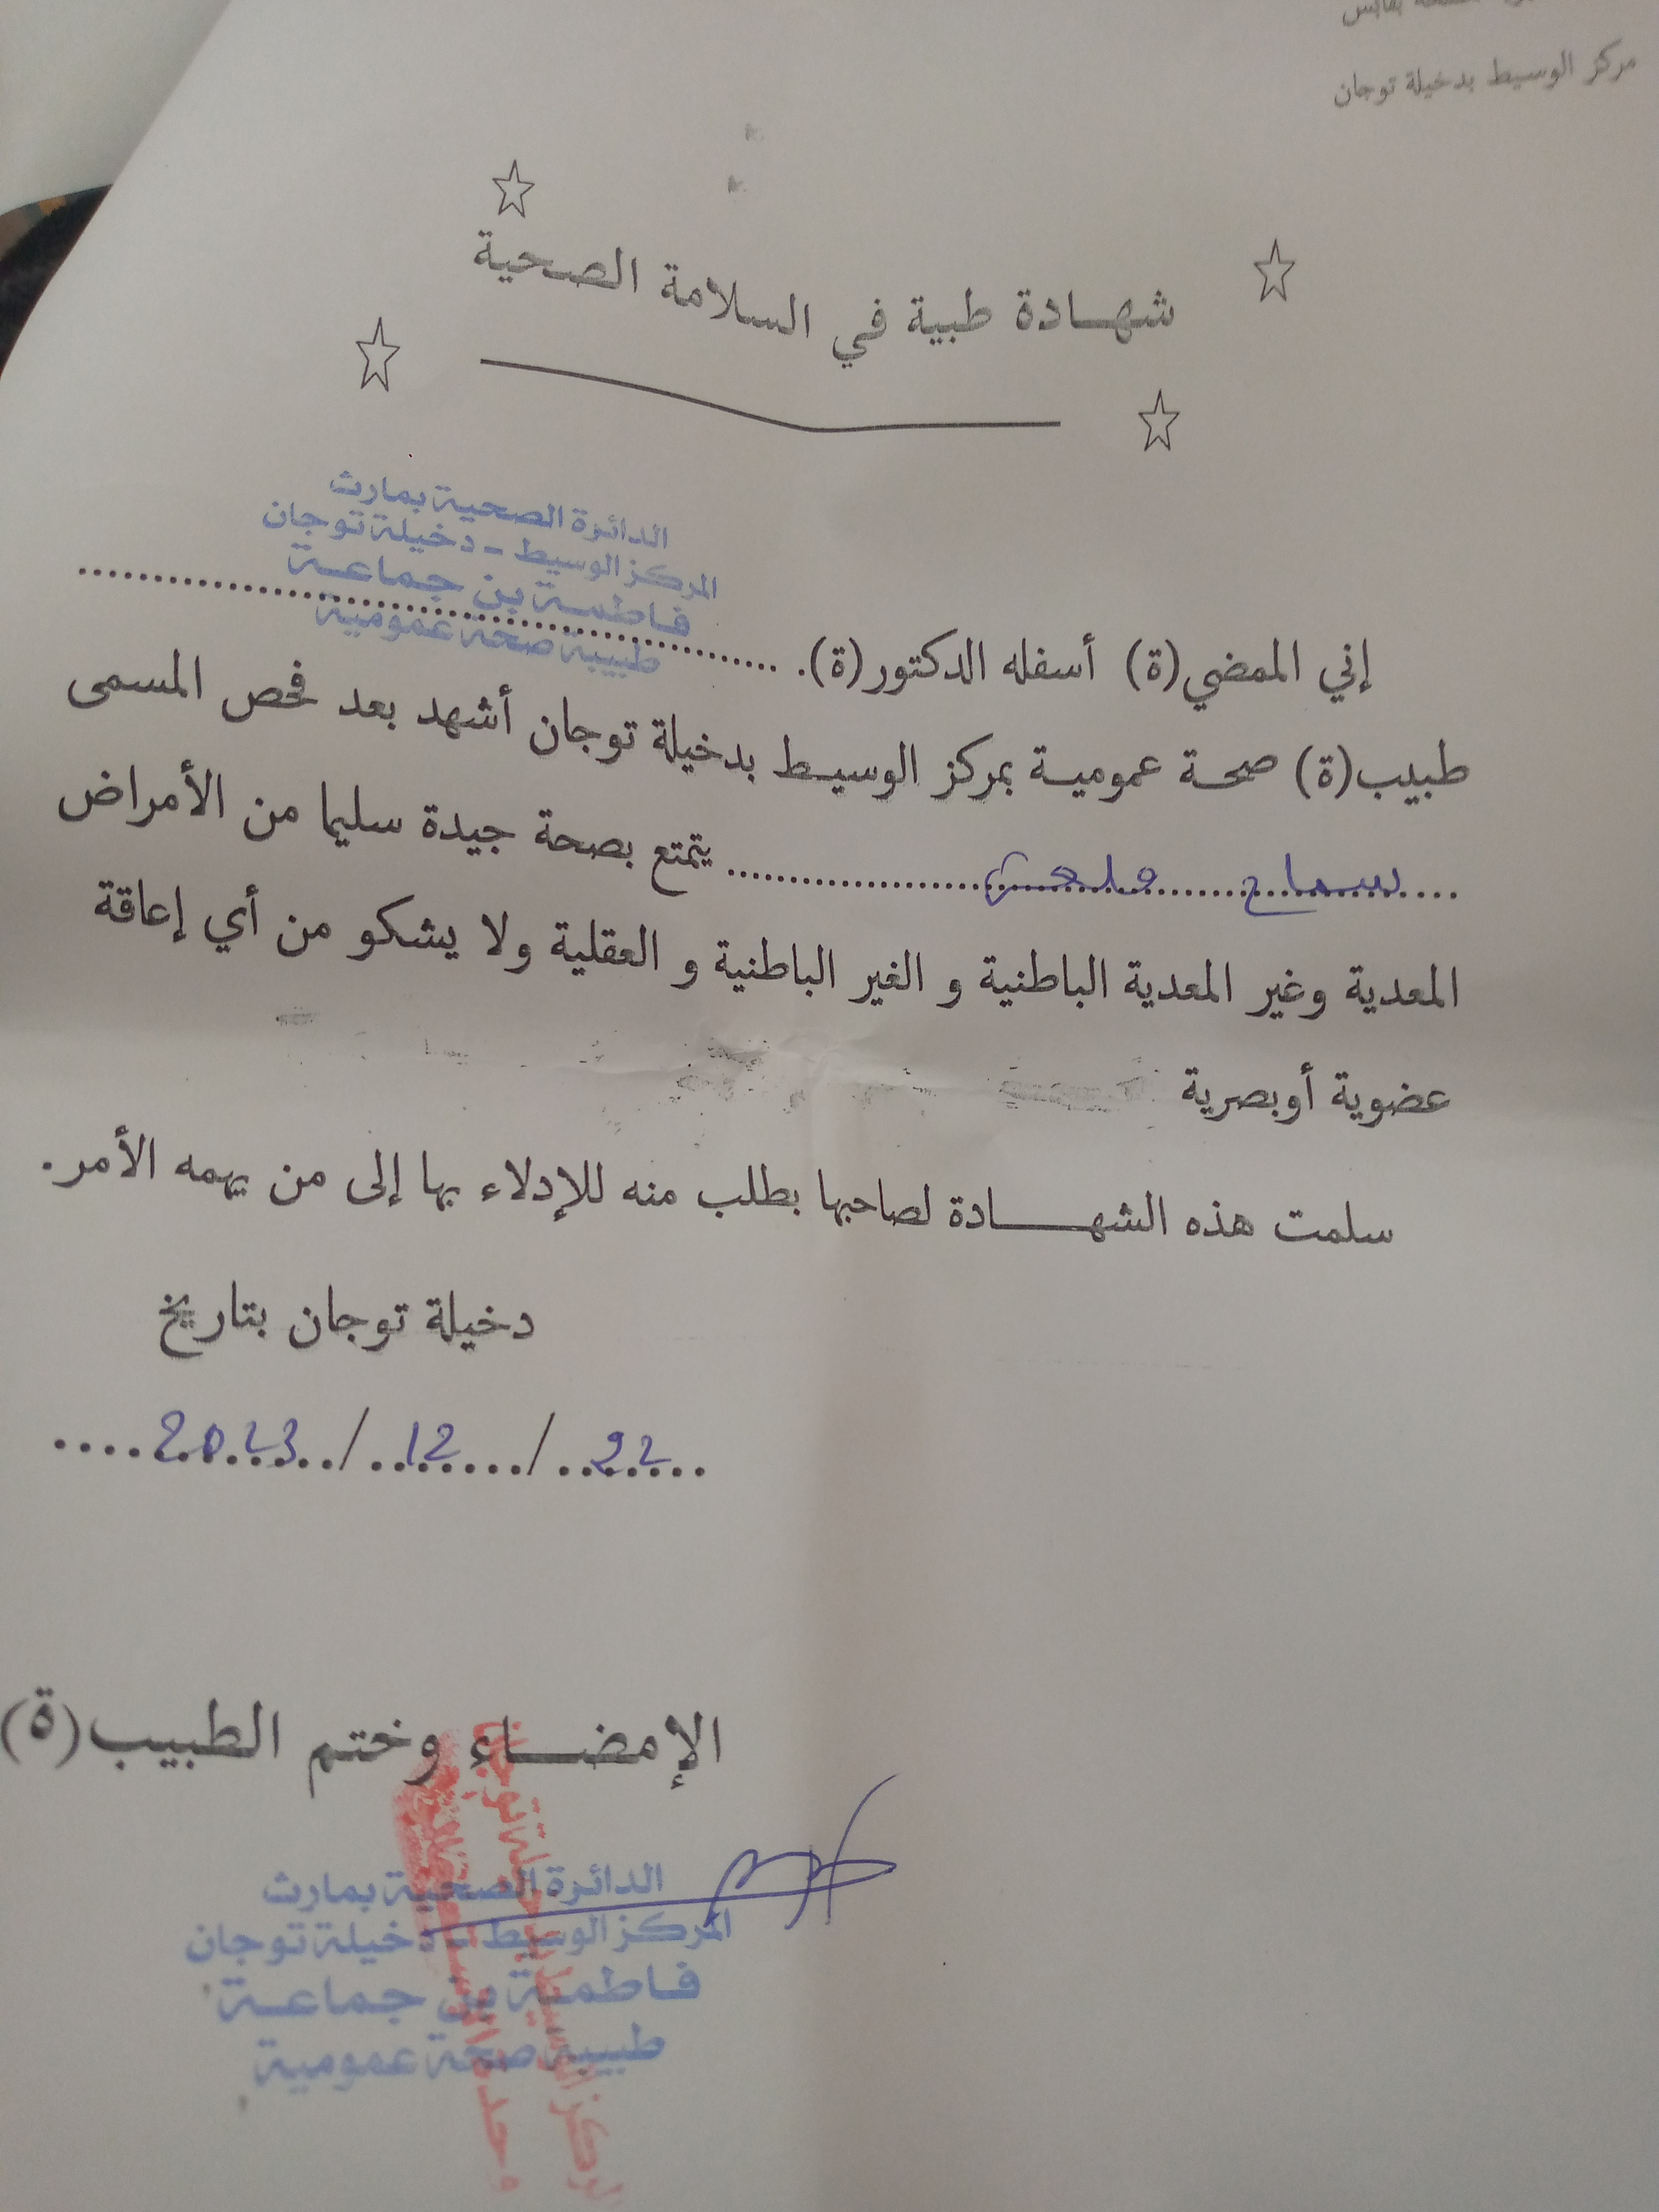 بقابس
مركز الوسيط بدخيلة توجان
شهادة طبية في السلامة الصحية
الدائرة الصحية بمارث
المركز الوسيط - دخيلة توجان
فاطمة بن جماعة
طبيبة صحة عمومية
إني الممضي(ة) أسفله الدكتور(ة).
طبيب(ة) صحة عمومية بمركز الوسيط بدخيلة توجان أشهد بعد فحص المسمى
سماح يتمتع بصحة جيدة سليما من الأمراض
المعدية وغير المعدية الباطنية و الغير الباطنية و العقلية ولا يشكو من أي إعاقة
عضوية أوبصرية
سلمت هذه الشهادة لصاحبها بطلب منه للإدلاء بها إلى من يهمه الأمر.
دخيلة توجان بتاريخ
22 / 12 / 2023
الإمضاء وختم الطبيب(ة)
الدائرة الصحية بمارث
المركز الوسيط - دخيلة توجان
فاطمة بن جماعة
طبيبة صحة عمومية